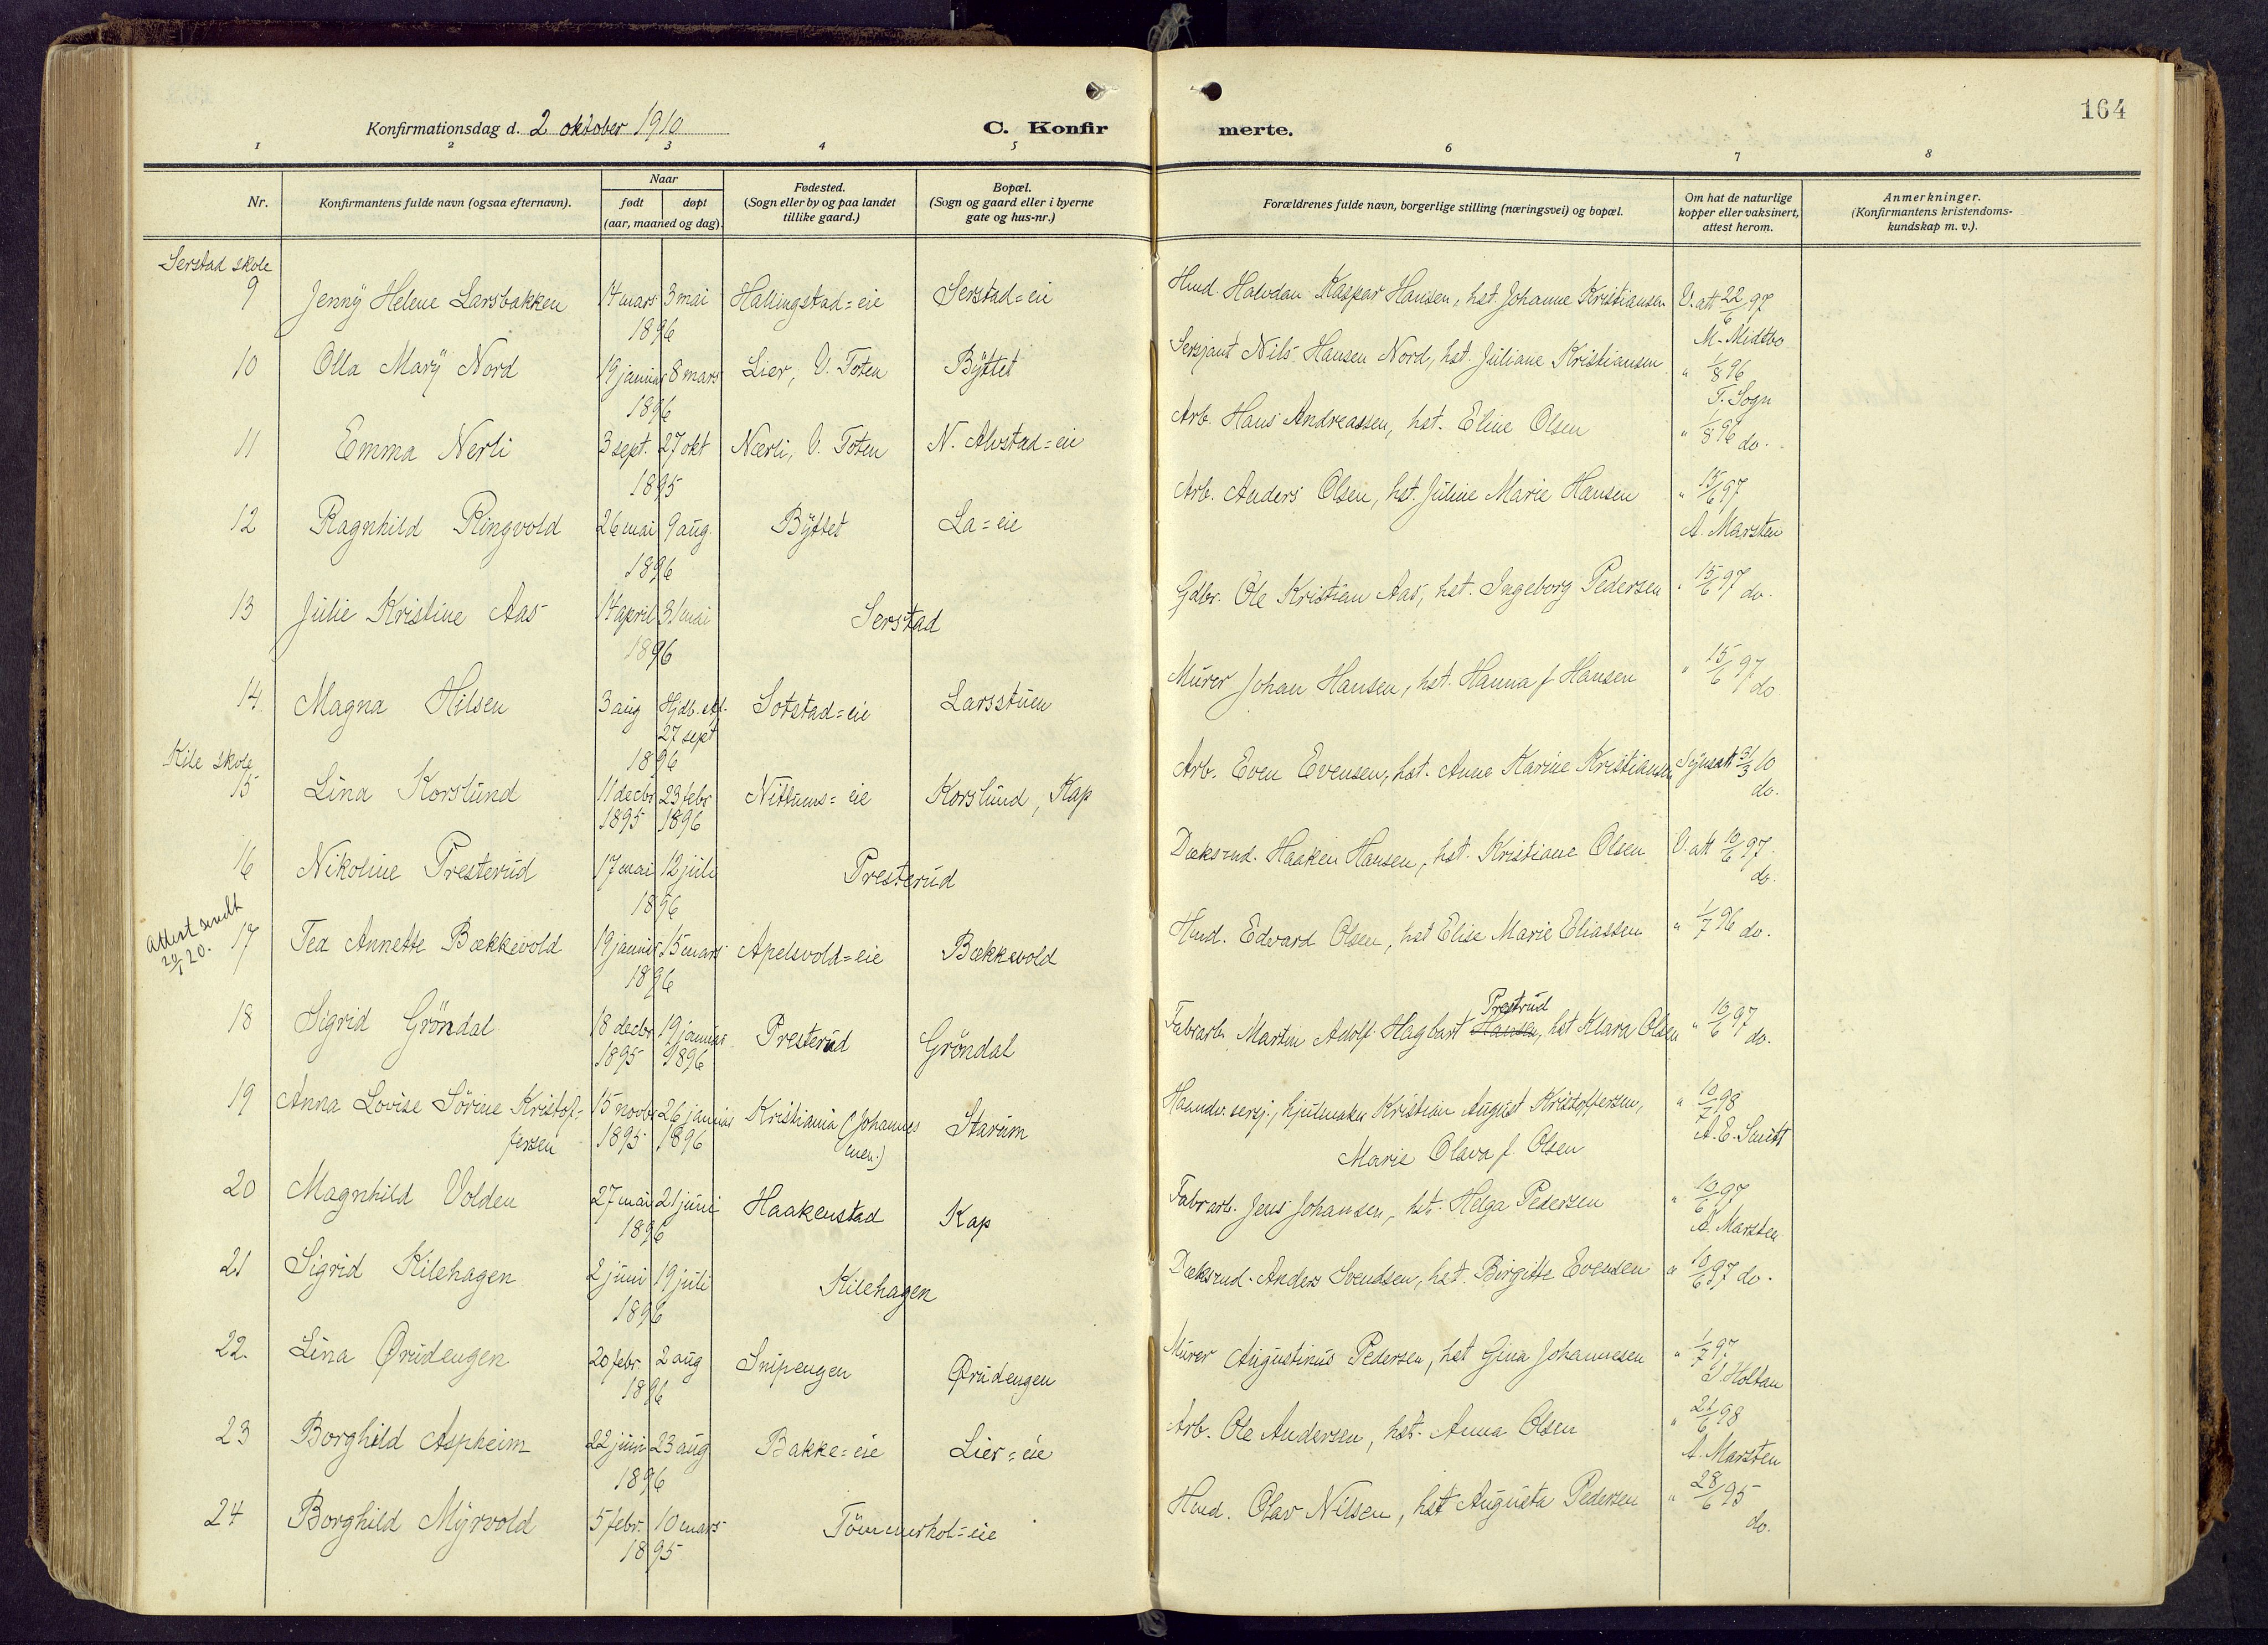 164
Konfirmationsdag d. 2 oktober 1910 C. Konfirmerte.
1 2 3 4 5 6 7 8
Nr.
Konfirmantens fulde navn (ogsaa efternavn).
Naar
født døpt
(aar, maaned og dag).
Fødested.
(Sogn eller by og paa landet
tillike gaard.)
Bopæl.
(Sogn og gaard eller i byerne
gate og hus-nr.)
Forældrenes fulde navn, borgerlige stilling (næringsvei) og bopæl.
Om hat de naturlige
kopper eller vaksinert,
attest herom.
Anmerkninger.
(Konfirmantens kristendoms-
kundskap m. v.).
Serstad skole
9 Jenny Helene Larsbakken 14 mars 3 mai Hallingstad=eie Serstad=eie Hmd Halvdan Kaspar Hansen, hst. Johanne Kristiansen V. att 22/6 97
1896 M. Midtbo
10 Olla Mary Nord 19 januar 8 mars Lier, V. Toten Byttet Sersjant Nils Hansen Nord, hst. Juliane Kristiansen " 1/8 96
1896 T. Sogn
11 Emma Nerli 3 sept. 27 okt Nærli, V. Toten N. Alvstad=eie Arb. Hans Andreassen, hst. Eline Olsen " 1/8 96 do.
1895
12 Ragnhild Ringvold 26 mai 9 aug. Byttet La=eie Arb. Anders Olsen, hst. Juline Marie Hansen " 15/6 97
1896 A. Marsten
13 Julie Kristine Aas 14 april 31 mai Serstad Gdbr. Ole Kristian Aas, hst. Ingeborg Pedersen " 15/6 97 do.
1896
14 Magna Hilsen 3 aug Hjdb. Sotstad=eie Larsstuen Murer Johan Hansen, hst. Hanna f Hansen " 15/6 97 do
27 sept
1896
Kile skole
15 Lina Korslund 11 decbr 23 febr Nittums=eie Korslund, Kap Arb. Even Evensen, hst. Anne Karine Kristiansen Synsatt 31/3 10
1895 1896 do.
16 Nikoline Presterud 17 mai 12 juli Presterud Dæksmd. Haaken Hansen, hst. Kristiane Olsen V. att 10/6 97
1896 do.
Attest sendt
20.
17 Tea Annette Bækkevold 19 januar 15 mars Apelsvold=eie Bækkevold Hmd. Edvard Olsen, hst Elise Marie Eliassen " 1/7 96 do.
1896
18 Sigrid Gröndal 18 decbr 19 januar Presterud Gröndal Fabrarb. Martin Adolf Hagbart Hansen Prestrud, hst Klara Olsen " 10/6 97
1895 1896 do.
19 Anna Lovise Sörine Kristof- 15 novbr 26 januar Kristiania (Johannes Starum Haandv. sersj., hjulmaker Kristian August Kristoffersen, " 10/7 98
fersen 1895 1896 men.) Marie Olava f. Olsen A. E. Smitt
20 Magnhild Volden 27 mai 21 juni Haakenstad Kap Fabrarb. Jens Johansen, hst. Helga Pedersen " 10/6 97
1896 A. Marsten
21 Sigrid Kilehagen 2 juni 19 juli Kilehagen Dæksmd. Anders Svendsen, hst. Birgitte Evensen " 10/6 97 do.
1896
22. Lina Ørudengen 20 febr. 2 aug Snipengen Ørudengen Murer Augustinus Pedersen, hst Gina Johannesen " 1/7 97
1896 Holtan
23 Borghild Aspheim 22 juni 23 aug Bakke=eie Lier=eie Arb. Ole Andersen, hst. Anna Olsen " 21/6 98
1896 A. Marsten
24 Borghild Myrvold 5 febr. 10 mars Tömmerhol=eie Hmd. Olav Nilsen, hst Augusta Pedersen " 28/6 95
1895 do.